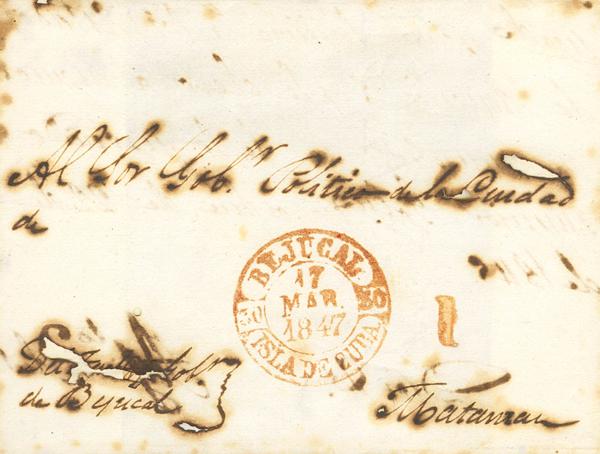 Al Sor Gobr. Politico de la Ciudad
de
BEJUCAL
17
MAR.
1847
ISLA DE CUBA
1
de Bejucal
Matanzas